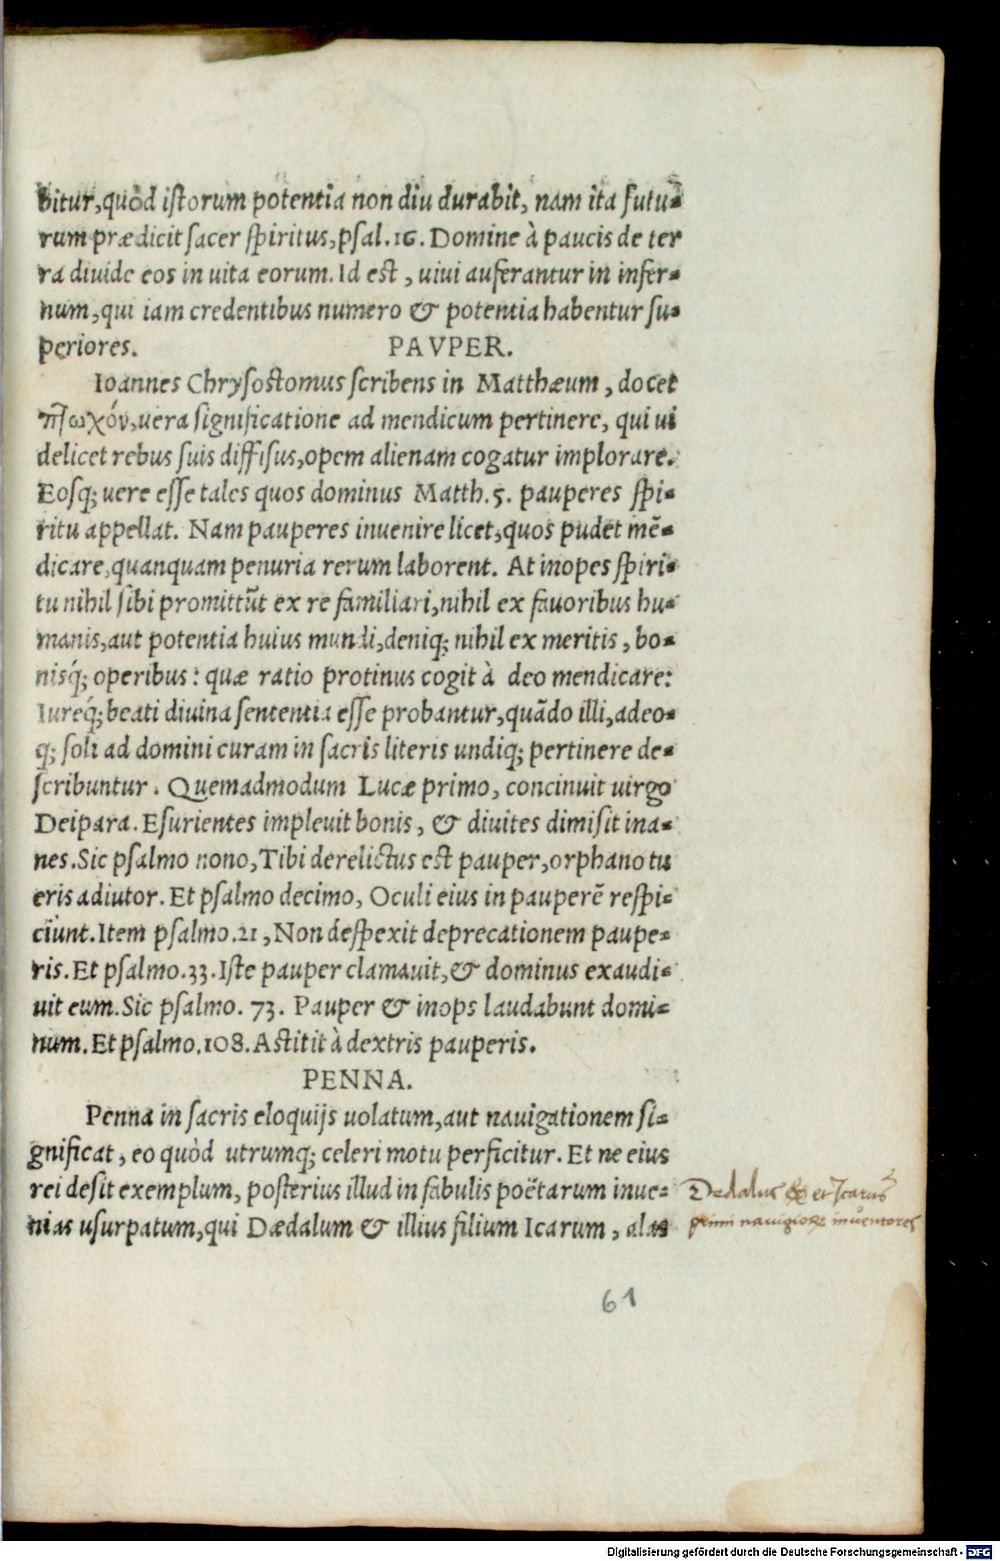 bitur,quòd istorum potentia non diu durabit, nam ita futu-
rum prædicit sacer spiritus,psal.16. Domine à paucis de ter
ra diuide eos in uita eorum. Id est, uiui auferantur in infer-
num,qui iam credentibus numero & potentia habentur su-
periores. PAVPER.
Ioannes Chrysostomus scribens in Matthæum, docet
πτωχόν,uera significatione ad mendicum pertinere, qui ui
delicet rebus suis diffisus,opem alienam cogatur implorare.
Eosq; uere esse tales quos dominus Matth.5. pauperes spi-
ritu appellat. Nam pauperes inuenire licet,quos pudet mē-
dicare,quanquam penuria rerum laborent. At inopes spiri-
tu nihil sibi promittūt ex re familiari,nihil ex fauoribus hu-
manis,aut potentia huius mundi,deniq; nihil ex meritis, bo-
nisq́; operibus: quæ ratio protinus cogit à deo mendicare:
Iureq́; beati diuina sententia esse probantur,quādo illi,adeo-
q; soli ad domini curam in sacris literis undiq; pertinere de-
scribuntur. Quemadmodum Lucæ primo, concinuit uirgo
Deipara. Esurientes impleuit bonis, & diuites dimisit ina-
nes. Sic psalmo nono, Tibi derelictus est pauper,orphano tu
eris adiutor. Et psalmo decimo, Oculi eius in pauperē respi-
ciunt. Item psalmo.21, Non despexit deprecationem paupe-
ris. Et psalmo.33. Iste pauper clamauit,& dominus exaudi-
uit eum. Sic psalmo. 73. Pauper & inops laudabunt domi-
num. Et psalmo.108. Astitit à dextris pauperis.
PENNA.
Penna in sacris eloquijs uolatum,aut nauigationem si-
gnificat, eo quòd utrumq; celeri motu perficitur. Et ne eius
rei desit exemplum, posterius illud in fabulis poëtarum inue-
nias usurpatum,qui Dædalum & illius filium Icarum, alas
Dedalus & Icarus
primi nauigiorꝝ inuentores
61
Digitalisierung gefördert durch die Deutsche Forschungsgemeinschaft - DFG